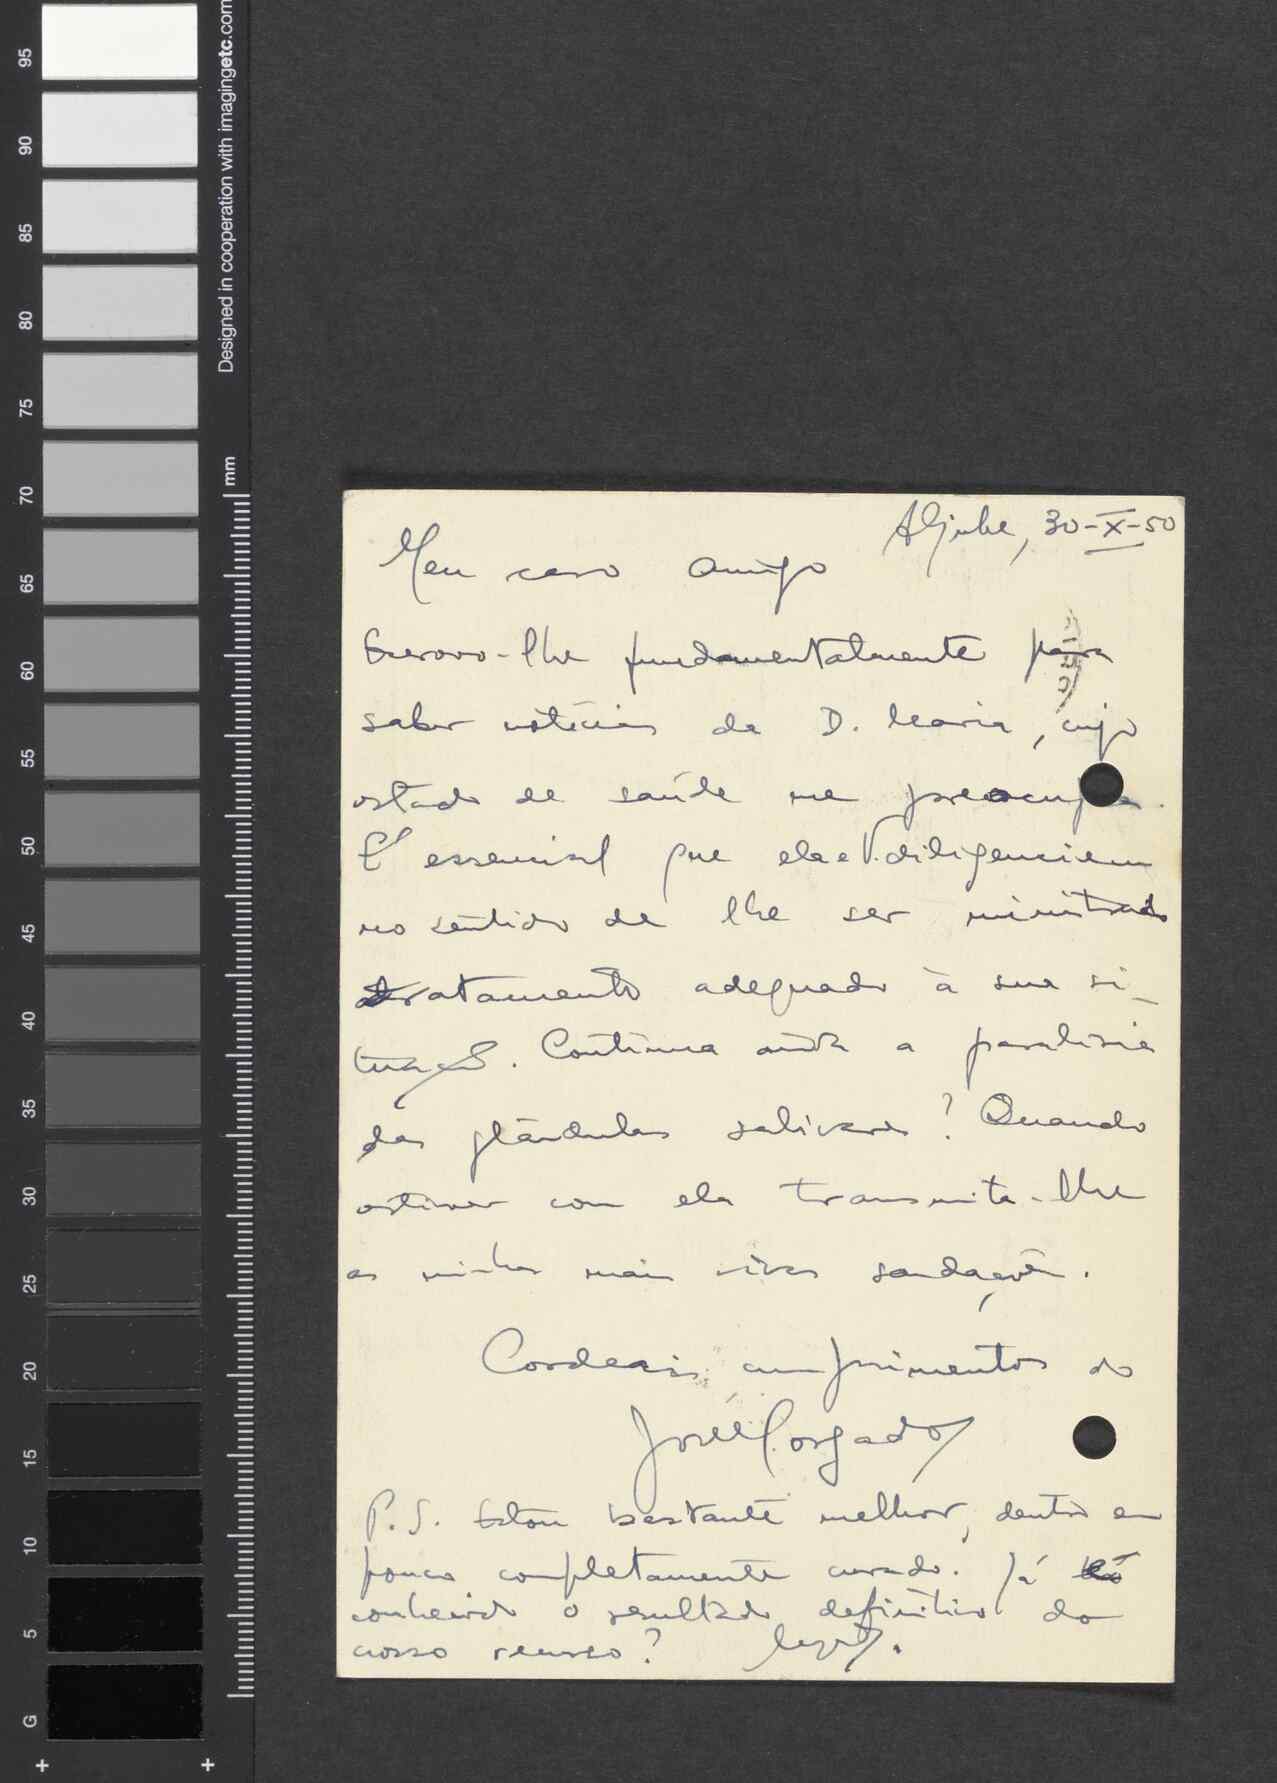 95
90
85
80
75
70
65
60
55
50
45
40
35
30
25
20
15
10
5
G
Designed in cooperation with imagingetc.com
mm
Aljube, 30-X-50
Meu caro amigo
Escrevo-lhe fundamentalmente para
saber notícias da D. Maria, cujo
estado de saúde me preocupa.
É essencial que ela e V. diligenciem
no sentido de lhe ser ministrado
tratamento adequado à sua si-
tuação. Continua ainda a paralisia
das glândulas salivares? Quando
estiver com ela transmita-lhe
as minhas mais vivas saudações.
Cordeais cumprimentos do
José Morgado
P.S. Estou bastante melhor, dentro em
pouco completamente curado. Já é
conhecido o resultado definitivo do
nosso recurso?